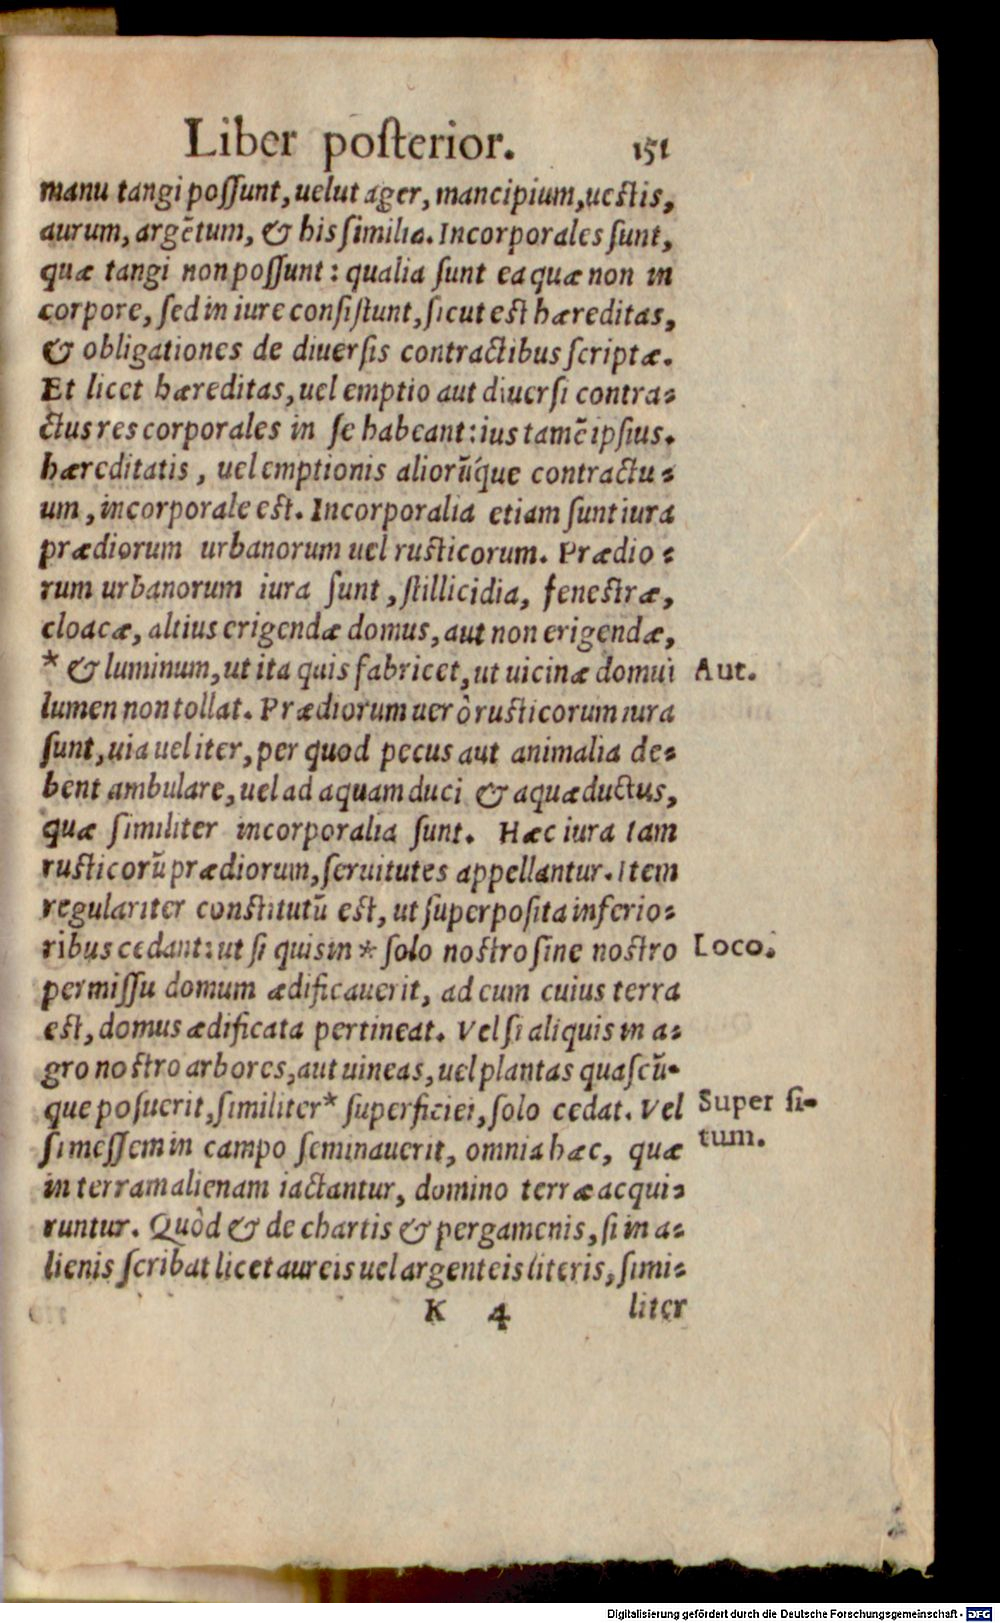 Liber posterior. 151
manu tangi possunt, uelut ager, mancipium, uestis,
aurum, argẽtum, & his similia. Incorporales sunt,
quæ tangi non possunt: qualia sunt ea quæ non in
corpore, sed in iure consistunt, sicut est hæreditas,
& obligationes de diuersis contractibus scriptæ.
Et licet hæreditas, uel emptio aut diuersi contra-
ctus res corporales in se habeant: ius tamẽ ipsius.
hæreditatis, uel emptionis aliorũq́ue contractu-
um, incorporale est. Incorporalia etiam sunt iura
prædiorum urbanorum uel rusticorum. Prædio-
rum urbanorum iura sunt, stillicidia, fenestræ,
cloacæ, altius erigendæ domus, aut non erigendæ,
* & luminum, ut ita quis fabricet, ut uicinæ domui Aut.
lumen non tollat. Prædiorum uerò rusticorum iura
sunt, uia uel iter, per quod pecus aut animalia de-
bent ambulare, uel ad aquam duci & aquæductus,
quæ similiter incorporalia sunt. Hæc iura tam
rusticorũ prædiorum, seruitutes appellantur. Item
regulariter constitutũ est, ut superposita inferio-
ribus cedant: ut si quis in * solo nostro sine nostro Loco.
permissu domum ædificauerit, ad eum cuius terra
est, domus ædificata pertineat. Vel si aliquis in a-
gro nostro arbores, aut uineas, uel plantas quascũ-
que posuerit, similiter * superficiei, solo cedat. Vel Super si-
si messem in campo seminauerit, omnia hæc, quæ tum.
in terram alienam iactantur, domino terræ acqui-
runtur. Quòd & de chartis & pergamenis, si in a-
lienis scribat licet aureis uel argenteis literis, simi-
K 4 liter
Digitalisierung gefördert durch die Deutsche Forschungsgemeinschaft - DFG